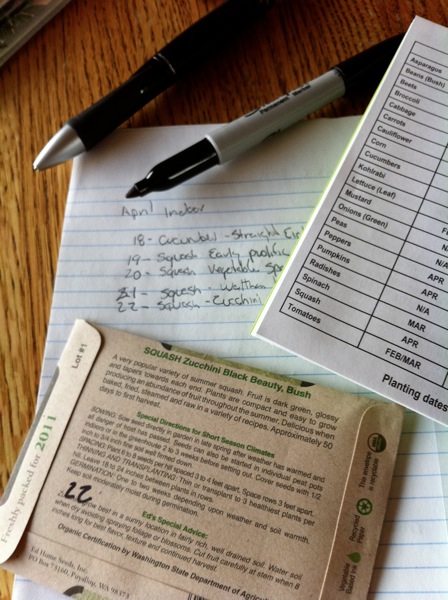 Permanent Marker
April Indoor
18 - Cucumber - Straight
19 - Squash Early prolific
20 - Squash Vegetable
21 - Squash - Waltham
22 - Squash - Zucchini
Asparagus
Beans (Bush)
Beets
Broccoli
Cabbage
Carrots
Cauliflower
Corn
Cucumbers
Kohlrabi
Lettuce (Leaf)
Mustard
Onions (Green)
Peas
Peppers
Pumpkins
Radishes
Spinach
Squash
Tomatoes
N/A
APR
APR
N/A
MAR
APR
FEB/MAR
Planting dates
Lot #1
Freshly packed for 2011
SQUASH Zucchini Black Beauty, Bush
A very popular variety of summer squash. Fruit is dark green, glossy
and tapers towards each end. Plants are compact and easy to grow
producing an abundance of fruit throughout the summer. Delicious when
baked, fried, steamed and raw in a variety of recipes. Approximately 50
days to first harvest.
Special Directions for Short Season Climates
SOWING: Sow seed directly in garden in late spring after weather has warmed and
all danger of frost has passed. Seeds can also be started in individual peat pots
indoors or in the greenhouse 2 to 3 weeks before setting out. Cover seeds with 1/2
to 3/4 inch fine soil and firm down.
SPACING: Plant 6 to 8 seeds per hill spaced 3 to 4 feet apart. Space rows 3 feet apart.
THINNING AND TRANSPLANTING: Thin or transplant to 3 healthiest plants per
hill. Leave 18 to 24 inches between plants in rows.
GERMINATION: One to two weeks depending upon weather and soil warmth.
Keep soil moderately moist during germination.
22
Ed's Special Advice:
grow best in a sunny location in fairly rich, well drained soil. Water soil
when dry avoiding spraying foliage or blossoms. Cut fruit carefully at stem when 8
inches long for best flavor, texture and continued harvest.
Organic Certification by Washington State Department of
Ed Hume Seeds, Inc.
PO Box 73160, Puyallup, WA 98373
This envelope is recyclable
Recycled Paper
Vegetable Based Ink